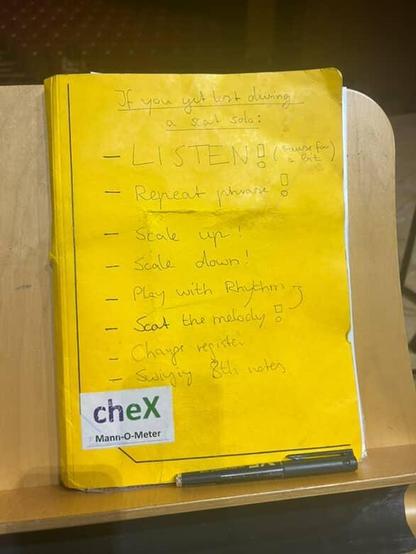 If you get lost during
a scat solo:
- LISTEN! (pause for
a bit)
- Repeat phrase!
- Scale up!
- Scale down!
- Play with Rhythm
- Scat the melody!
- Change register
- Swinging 8th notes
cheX
Mann-O-Meter